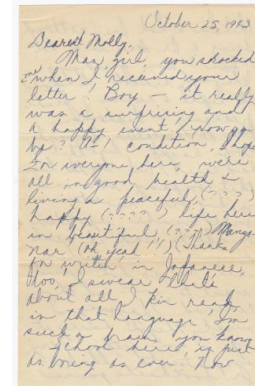 October 25, 1942
Dearest Molly,
Man, girl, you shocked
me when I received your
letter! Boy — it really
was a surprising and
a happy event! How you
by? A-1 condition, I hope
For everyone here, we're
all in good health &
living a peaceful, (???)
happy (????) life here
in beautiful (???) Manza-
nar (oh yeah!!) (Thanks
for writin' in Japanese,
too, I swear, thats
about all I kin read
in that language, I'm
such a brain, you know
School here is just
as boring as ever. Now